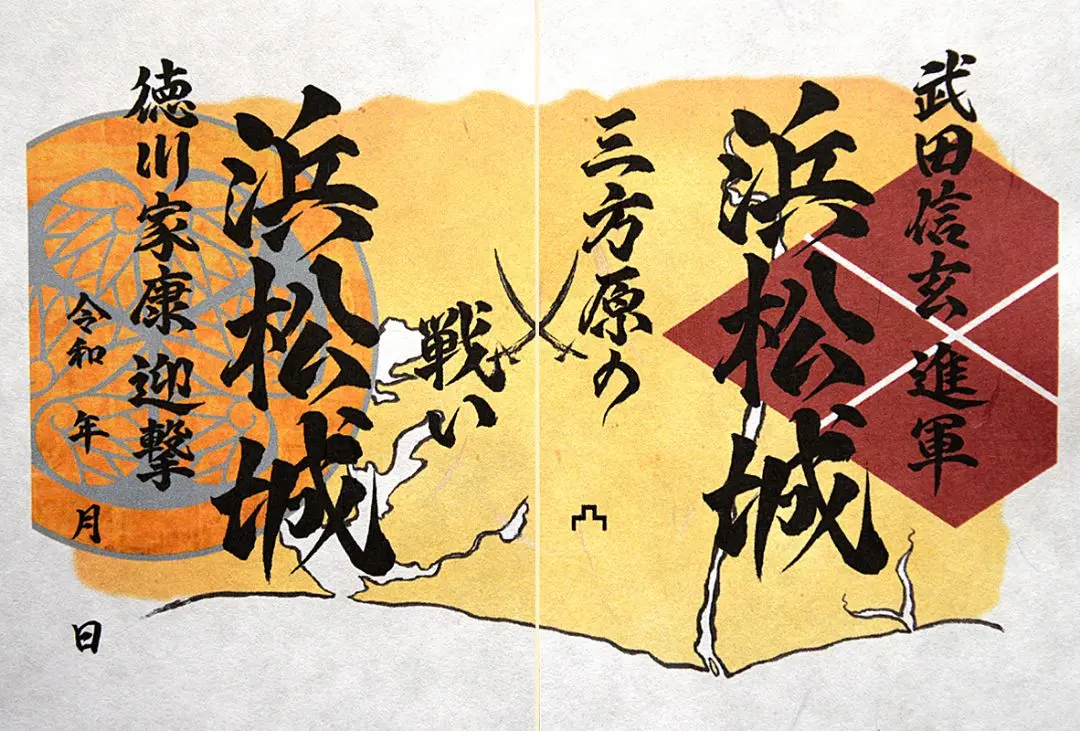 武田信玄 進軍
浜松城
三方原の
戦い
浜松城
徳川家康 迎撃
令和 年 月 日